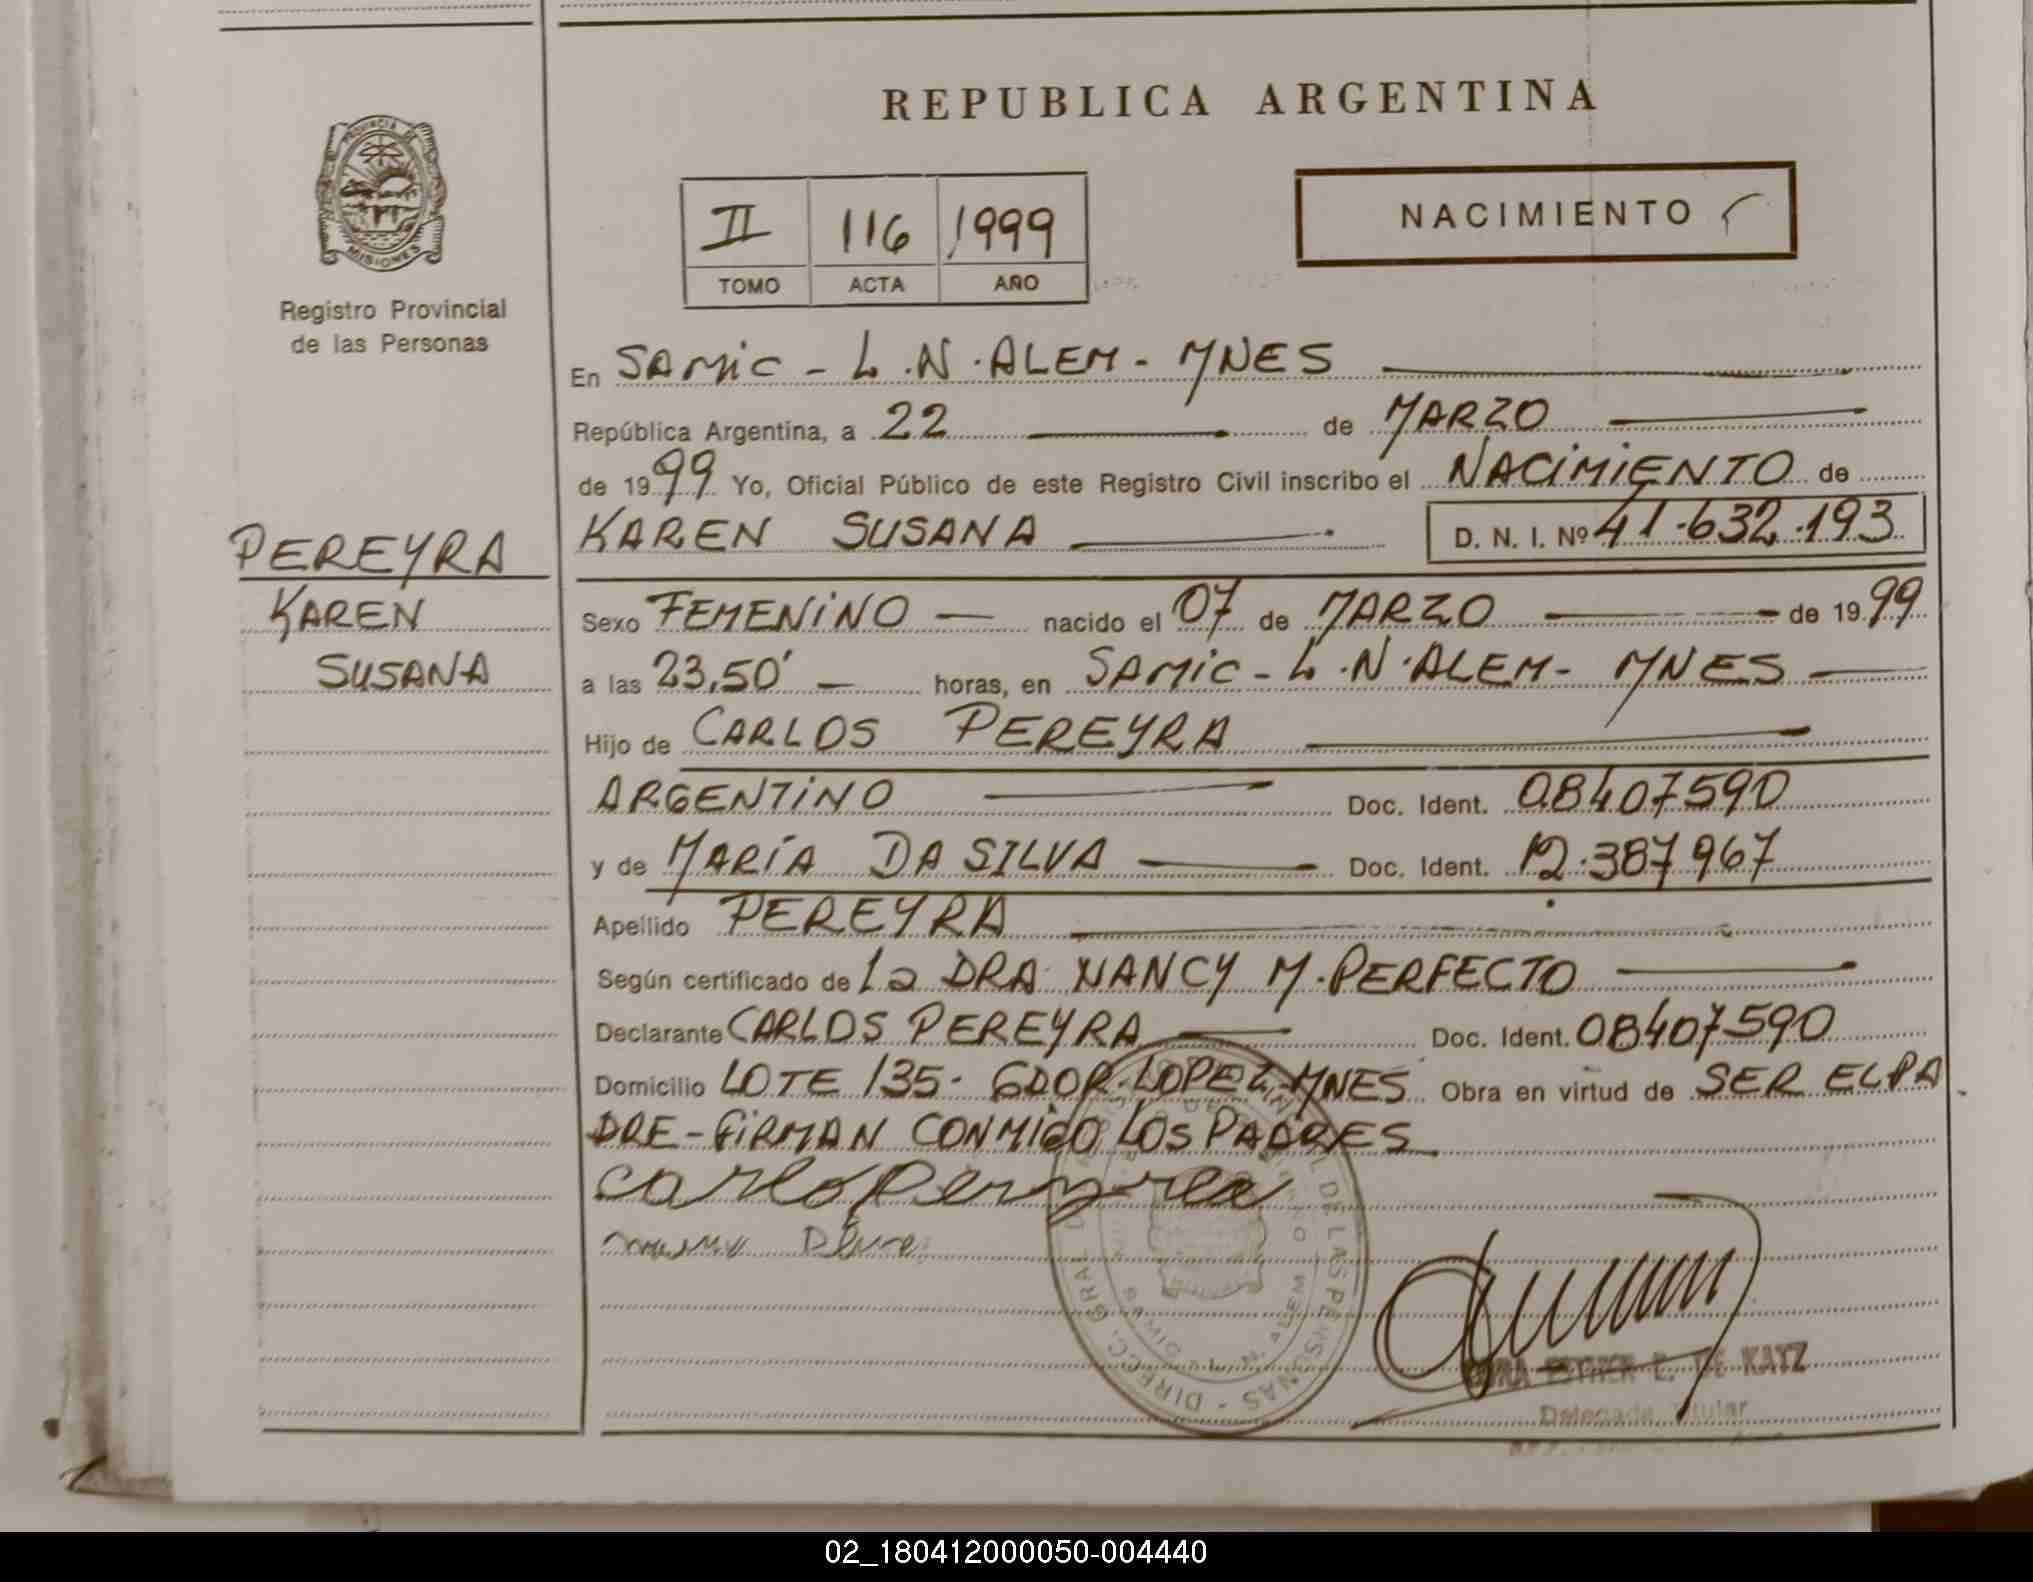 REPUBLICA ARGENTINA
PROVINCIA DE
MISIONES
Registro Provincial
de las Personas
II 116 1999
TOMO ACTA AÑO
NACIMIENTO
En SAMIC - L.N.ALEM - MNES
República Argentina, a 22 de MARZO
de 1999 Yo, Oficial Público de este Registro Civil inscribo el NACIMIENTO de
KAREN SUSANA D. N. I. Nº 41.632.193
PEREYRA
KAREN
SUSANA
Sexo FEMENINO nacido el 07 de MARZO de 1999
a las 23,50' horas, en SAMIC - L.N.ALEM - MNES
Hijo de CARLOS PEREYRA
ARGENTINO Doc. Ident. 08407590
y de MARÍA DA SILVA Doc. Ident. 12.387967
Apellido PEREYRA
Según certificado de La DRA NANCY M. PERFECTO
Declarante CARLOS PEREYRA Doc. Ident. 08407590
Domicilio LOTE 135 - GDOR. LOPEZ - MNES Obra en virtud de SER EL PA
DRE - FIRMAN CONMIGO LOS PADRES
Carlo Pereyra
DIRECC. GRAL. DE LAS PERSONAS
ESTHER DE KATZ
Delegada Titular
02_180412000050-004440